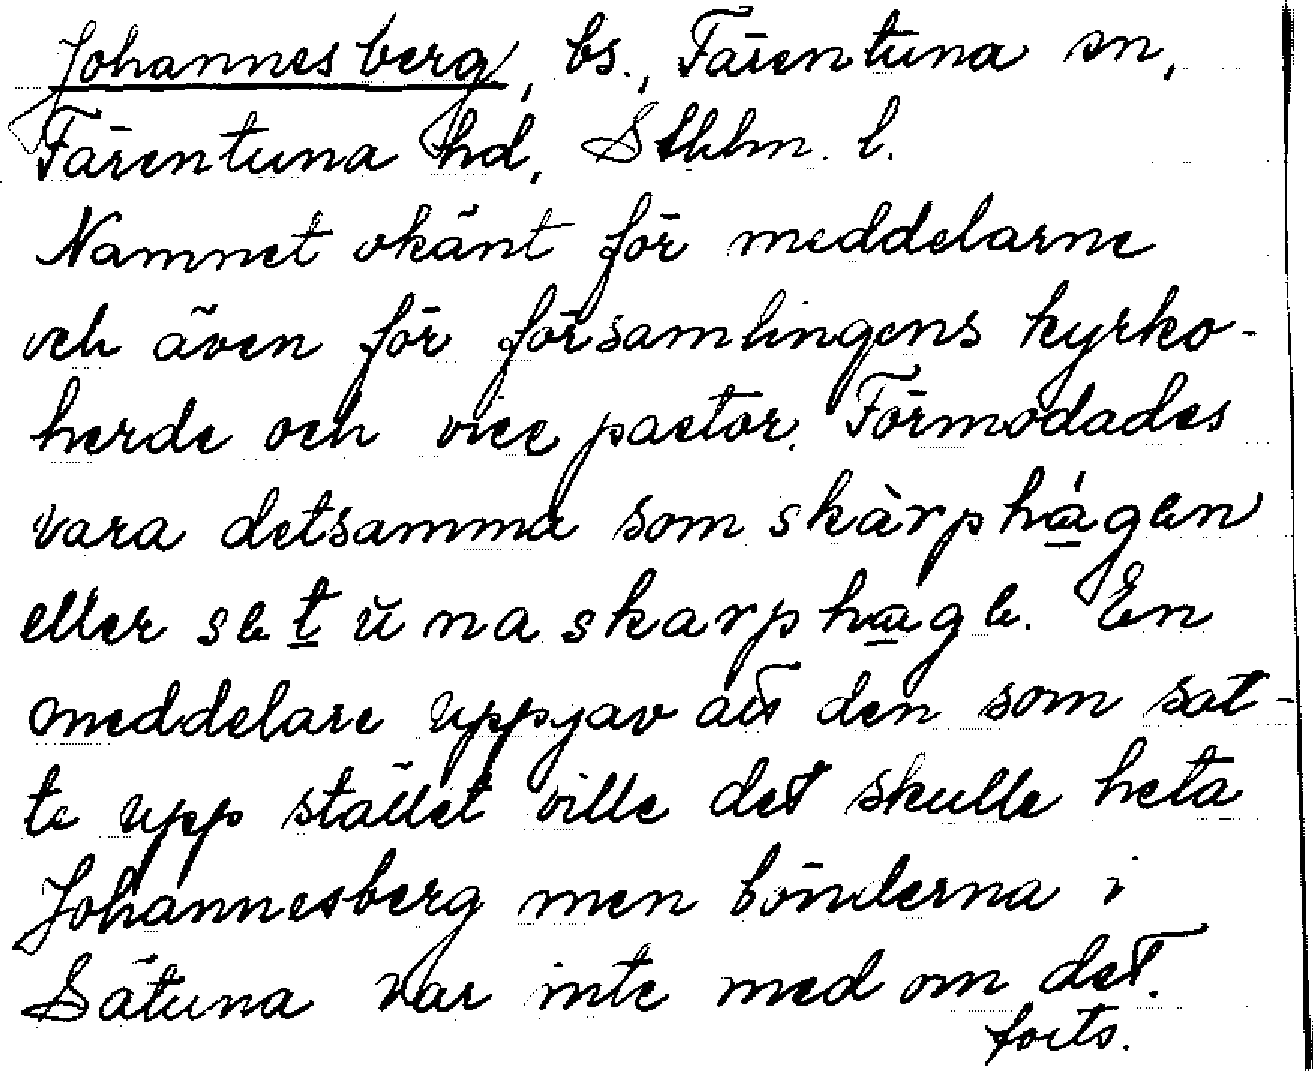 Johannesberg, bs., Färentuna sn,
Färentuna hd, Sthlm. l.
Namnet okänt för meddelarne
och även för församlingens kyrko-
herde och vice pastor. Förmodades
vara detsamma som skàrphágen
eller
En
meddelare uppgav att den som sat-
te upp stället ville det skulle heta
Johannesberg men bönderna i
Sätuna var inte med om det.
forts.